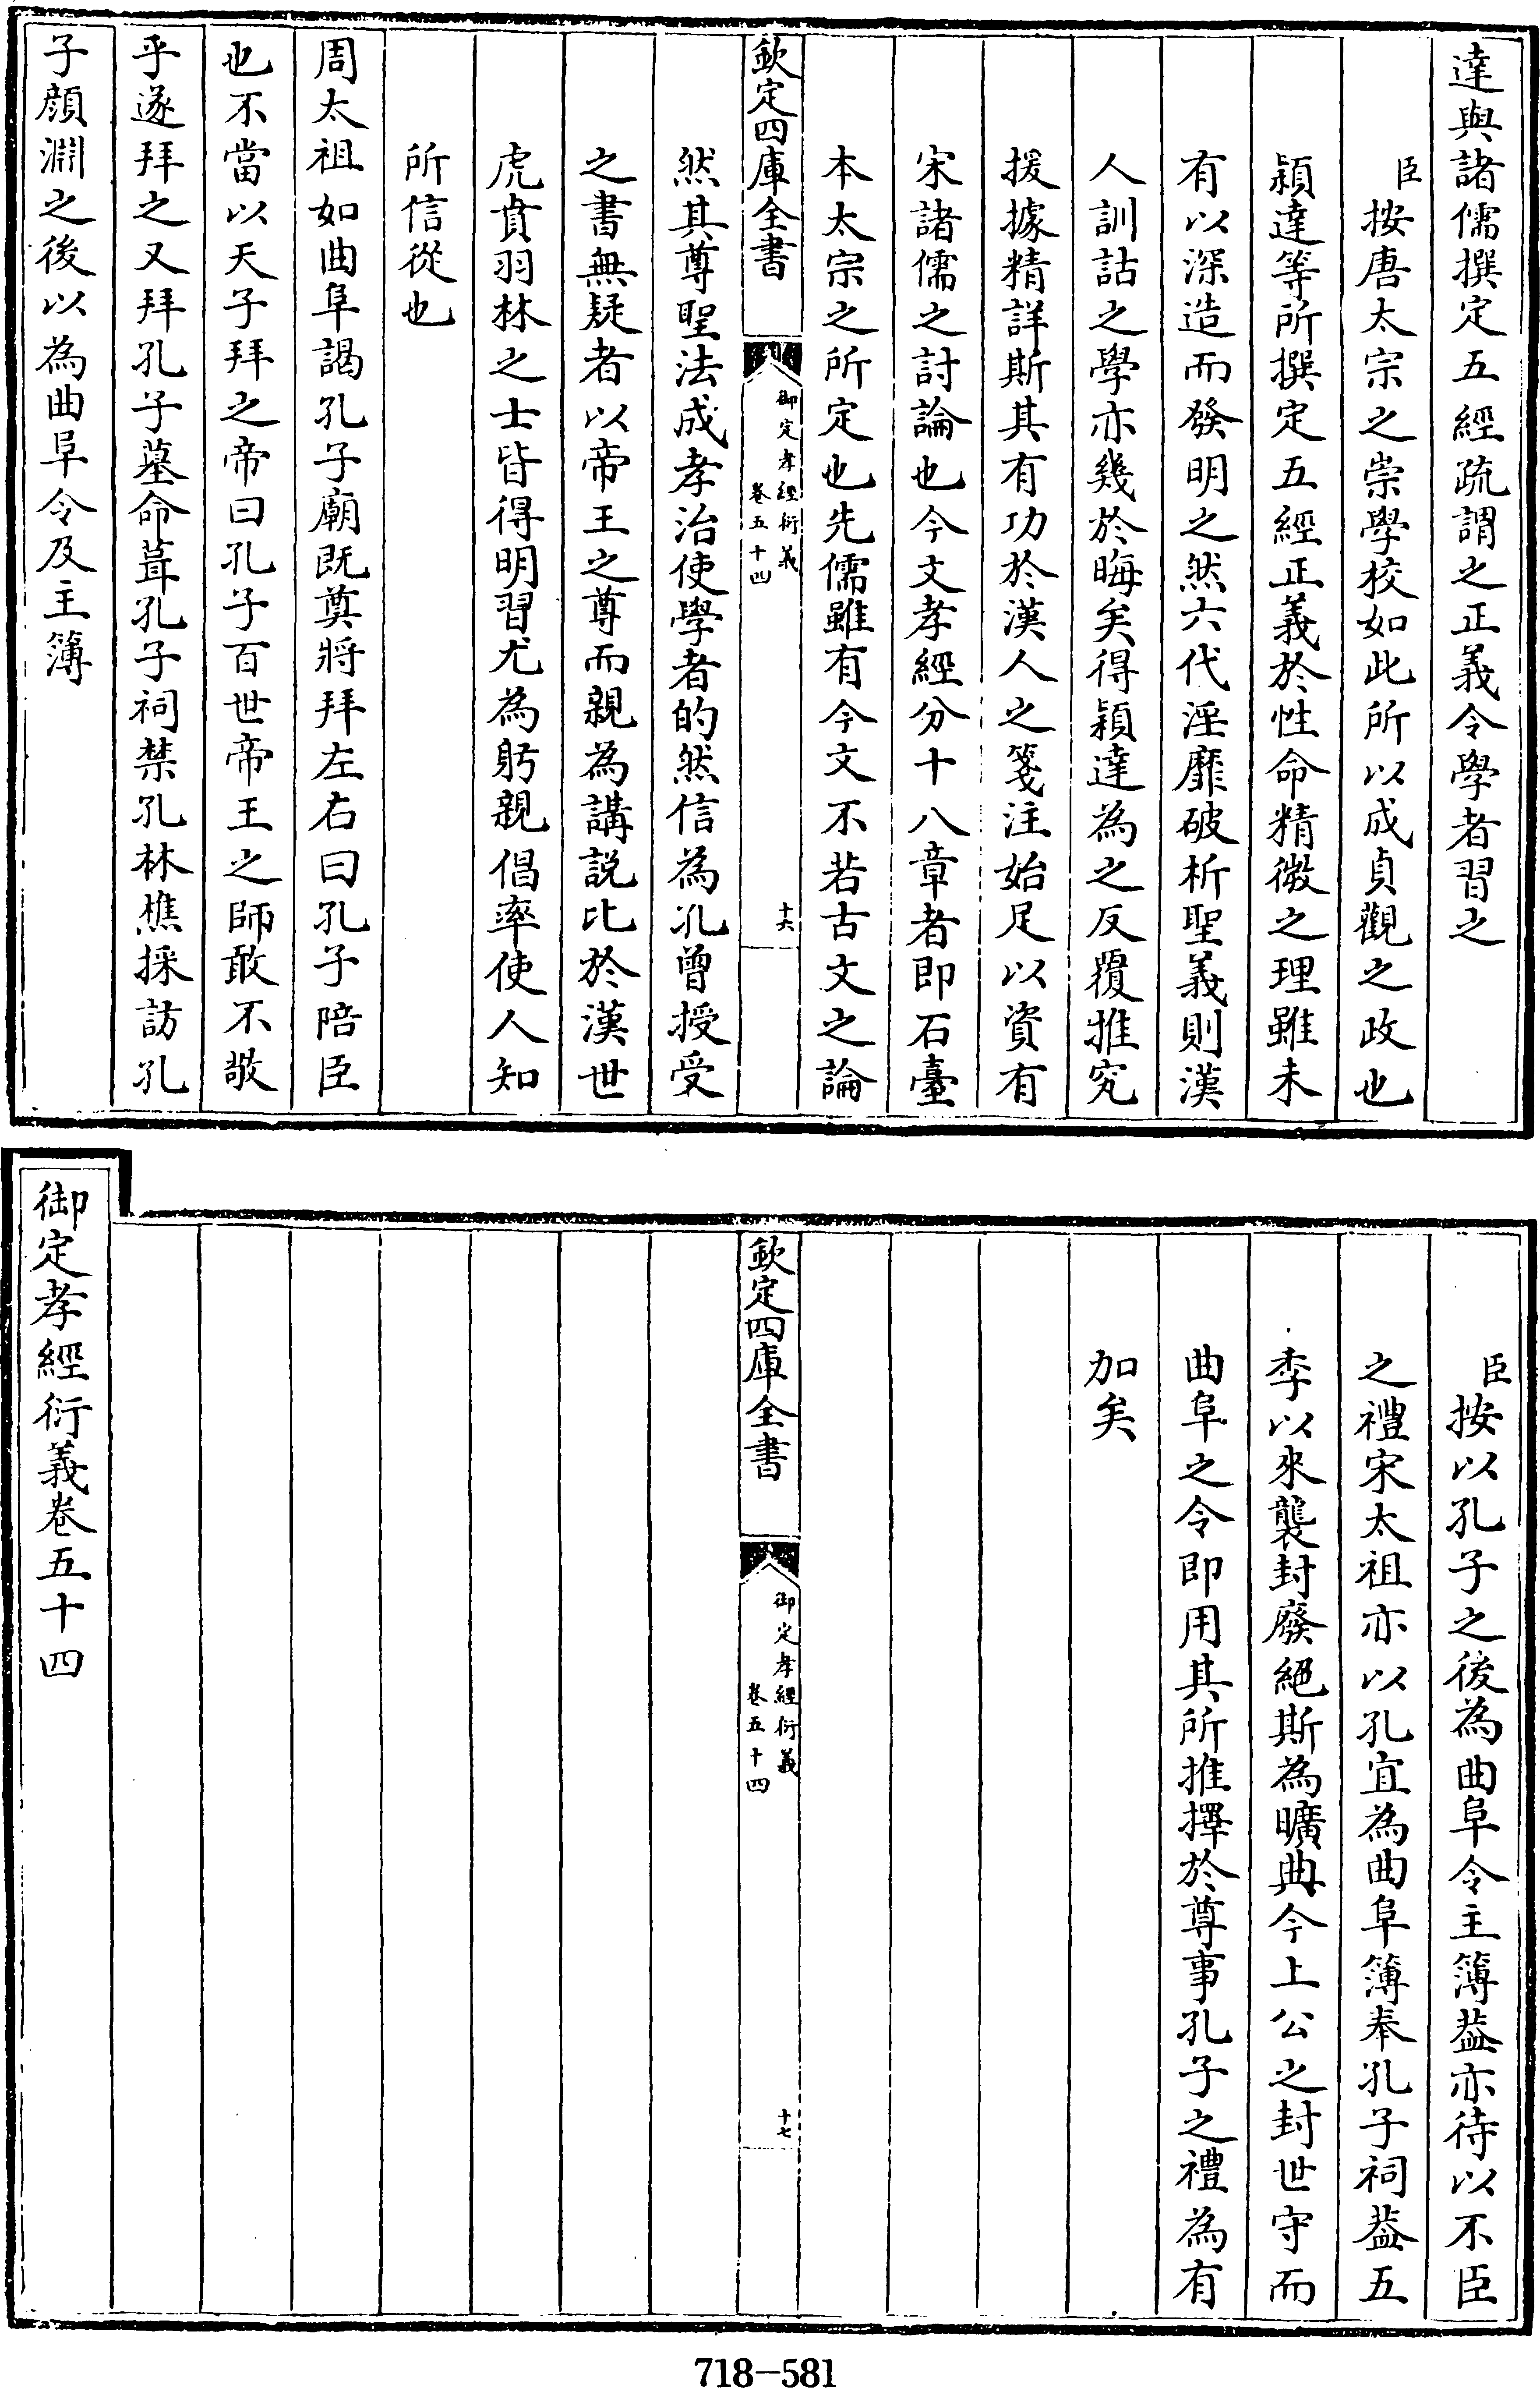 達與諸儒撰定五經疏謂之正義令學者習之
臣按唐太宗之崇學校如此所以成貞觀之政也
穎達等所撰定五經正義於性命精微之理雖未
有以深造而發明之然六代淫靡破析聖義則漢
人訓詁之學亦幾於晦矣得穎達為之反覆推究
援據精詳斯其有功於漢人之箋注始足以資有
宋諸儒之討論也今文孝經分十八章者即石臺
本太宗之所定也先儒雖有今文不若古文之論
欽定四庫全書
御定孝經衍義
卷五十四
十六
然其尊聖法成孝治使學者的然信為孔曾授受
之書無疑者以帝王之尊而親為講説比於漢世
虎賁羽林之士皆得明習尤為躬親倡率使人知
所信從也
周太祖如曲阜謁孔子廟既奠將拜左右曰孔子陪臣
也不當以天子拜之帝曰孔子百世帝王之師敢不敬
乎遂拜之又拜孔子墓命葺孔子祠禁孔林樵採訪孔
子顔淵之後以為曲阜令及主簿
臣按以孔子之後為曲阜令主簿葢亦待以不臣
之禮宋太祖亦以孔宜為曲阜簿奉孔子祠葢五
季以來襲封廢絕斯為曠典今上公之封世守而
曲阜之令即用其所推擇於尊事孔子之禮為有
加矣
欽定四庫全書
御定孝經衍義
卷五十四
十七
御定孝經衍義卷五十四
718-581